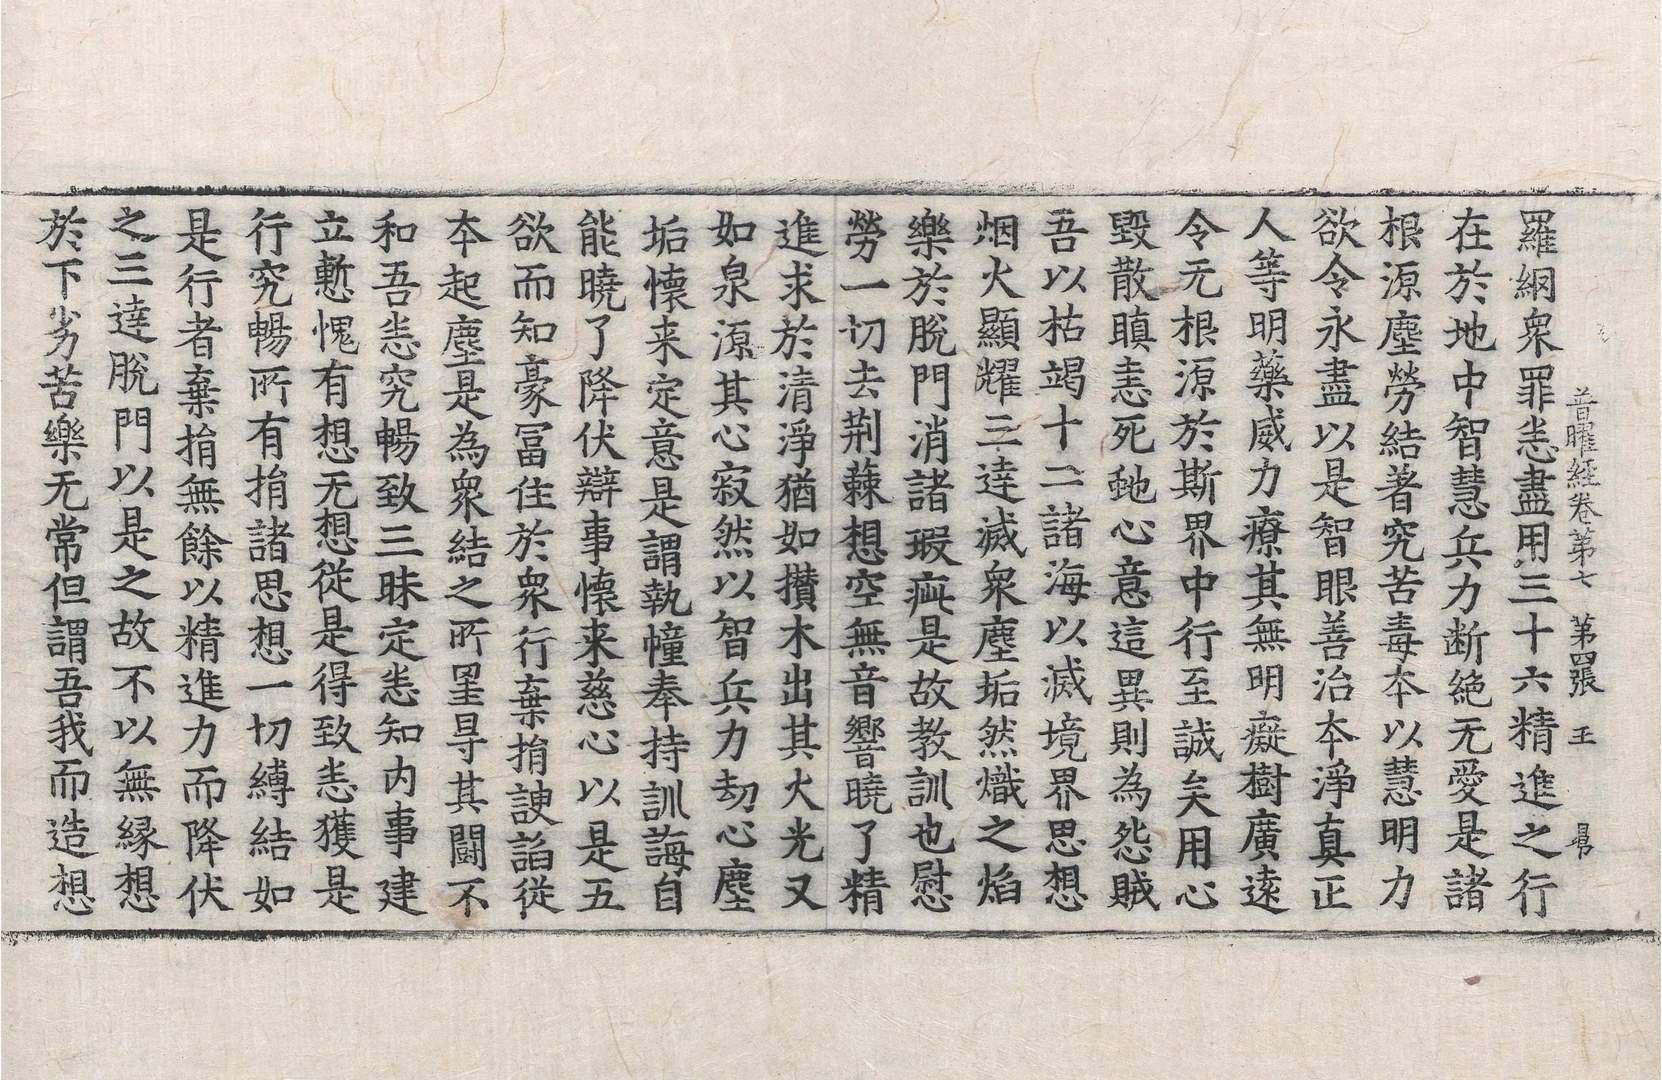 普曜經卷第七　第四張　王
羅網衆罪恙盡用三十六精進之行
在於地中智慧兵力断絶无愛是諸
根源塵勞結著究苦毒本以慧明力
欲令永盡以是智眼善治本淨真正
人等明藥威力療其無明癡樹廣遠
令无根源於斯界中行至誠矣用心
毀散瞋恚死虵心意這異則為怨賊
吾以枯竭十二諸海以滅境界思想
烟火顯耀三達滅衆塵垢然熾之焰
樂於脫門消諸瑕疵是故教訓也慰
勞一切去荆棘想空無音響曉了精
進求於清淨猶如攢木出其火光又
如泉源其心寂然以智兵力劫心塵
垢懷来定意是謂執幢奉持訓誨自
能曉了降伏辯事懷来慈心以是五
欲而知豪冨住於衆行棄捐諛諂從
本起塵是為衆結之所罣㝵其闘不
和吾恙究暢致三昧定恙知内事建
立慙愧有想无想從是得致恙獲是
行究暢所有捐諸思想一切縛結如
是行者棄捐無餘以精進力而降伏
之三達脫門以是之故不以無縁想
於下劣苦樂无常但謂吾我而造想